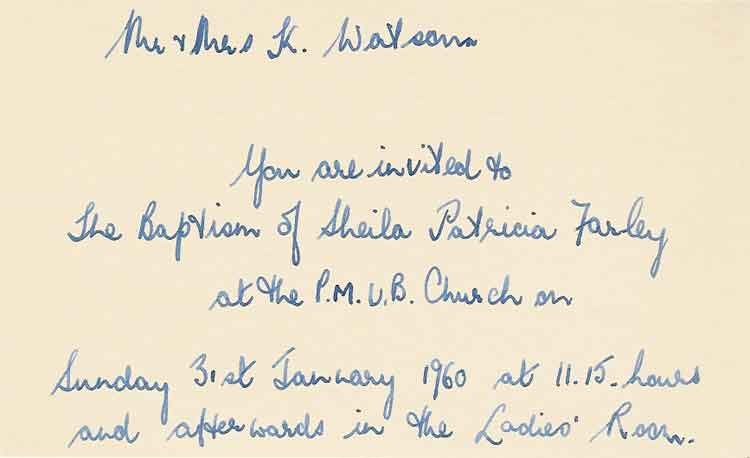 Mr & Mrs K. Watson
You are invited to
The Baptism of Sheila Patricia Farley
at the P.M.U.B. Church on
Sunday 31st January 1960 at 11.15. hours
and afterwards in the Ladies' Room.